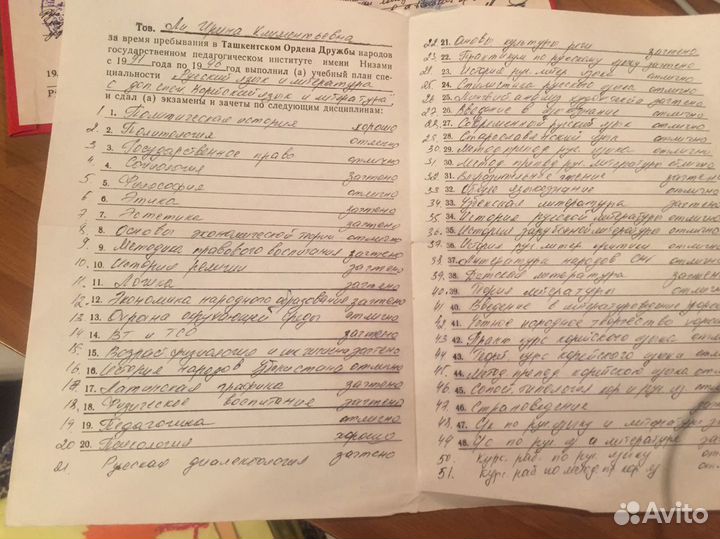 Тов. Ли Ирина Климентьевна
за время пребывания в Ташкентском Ордена Дружбы народов
государственном педагогическом институте имени Низами
с 1991 года по 1996 год выполнил (а) учебный план спе-
циальности „Русский язык и литература
с доп. спец. Корейский язык и литература"
и сдал (а) экзамены и зачеты по следующим дисциплинам:
1 1. Политическая история хорошо
2. 2. Политология отлично
3 3. Государственное право отлично
4 4. Социология зачтено
5 5. Философия отлично
6 6. Этика зачтено
7 7. Эстетика зачтено
8 8. Основы экономической теории отлично
9. 9. Методика правового воспитания зачтено
10. 10. История религии зачтено
11. 11. Логика зачтено
12. 12. Экономика народного образования зачтено
13. 13. Охрана окружающей среды отлично
14 14. ВТ и ТСО зачтено
15. 15. Возраст. физиология и шк. гигиена зачтено
16. 16. История народов Узбекистана отлично
17. 17. Латинская графика зачтено
18. 18. Физическое воспитание зачтено
19. 19. Педагогика отлично
20 20. Психология хорошо
21 Русская диалектология зачтено
22 21. Основы культуры речи зачтено
23. 22. Практикум по русскому языку зачтено
24 23. История рус. литер. языка отлично
25. 24. Стилистика русского языка отлично
26 25. зачтено
27 26. Введение в языкознание отлично
28. 27. Современный русский язык отлично
29 28. Старославянский язык отлично
30 29. Метод. препод. рус. языка отлично
31. 30. Метод. препод. рус. литературы отлично
32. 31. Выразительное чтение зачтено
33 32. Общее языкознание отлично
34 33. Узбекская литература зачтено
35 34. История русской литературы отлично
36. 35. История зарубежной литературы отлично
37. 36. История рус. литер. критики отлично
38 37. Литература народов СНГ отлично
39. 38. Детская литература зачтено
40. 39. Теория литературы отлично
41 40. Введение в литературоведение
42 41. Устное народное творчество
43 42. Практ. курс корейского языка отл
44. 43. Теорет. курс корейского языка отл
45. 44. Метод. препод. корейского языка отл
46 45. Сопост. типология кор. и рус. яз. отл
47 46. Страноведение
48. 47. по рус. языку и литературе
49 48. по рус. яз. и литературе
50. Курс. раб. по рус. языку
51. Курс. раб. по метод. пр. кор. яз.
19
Avito